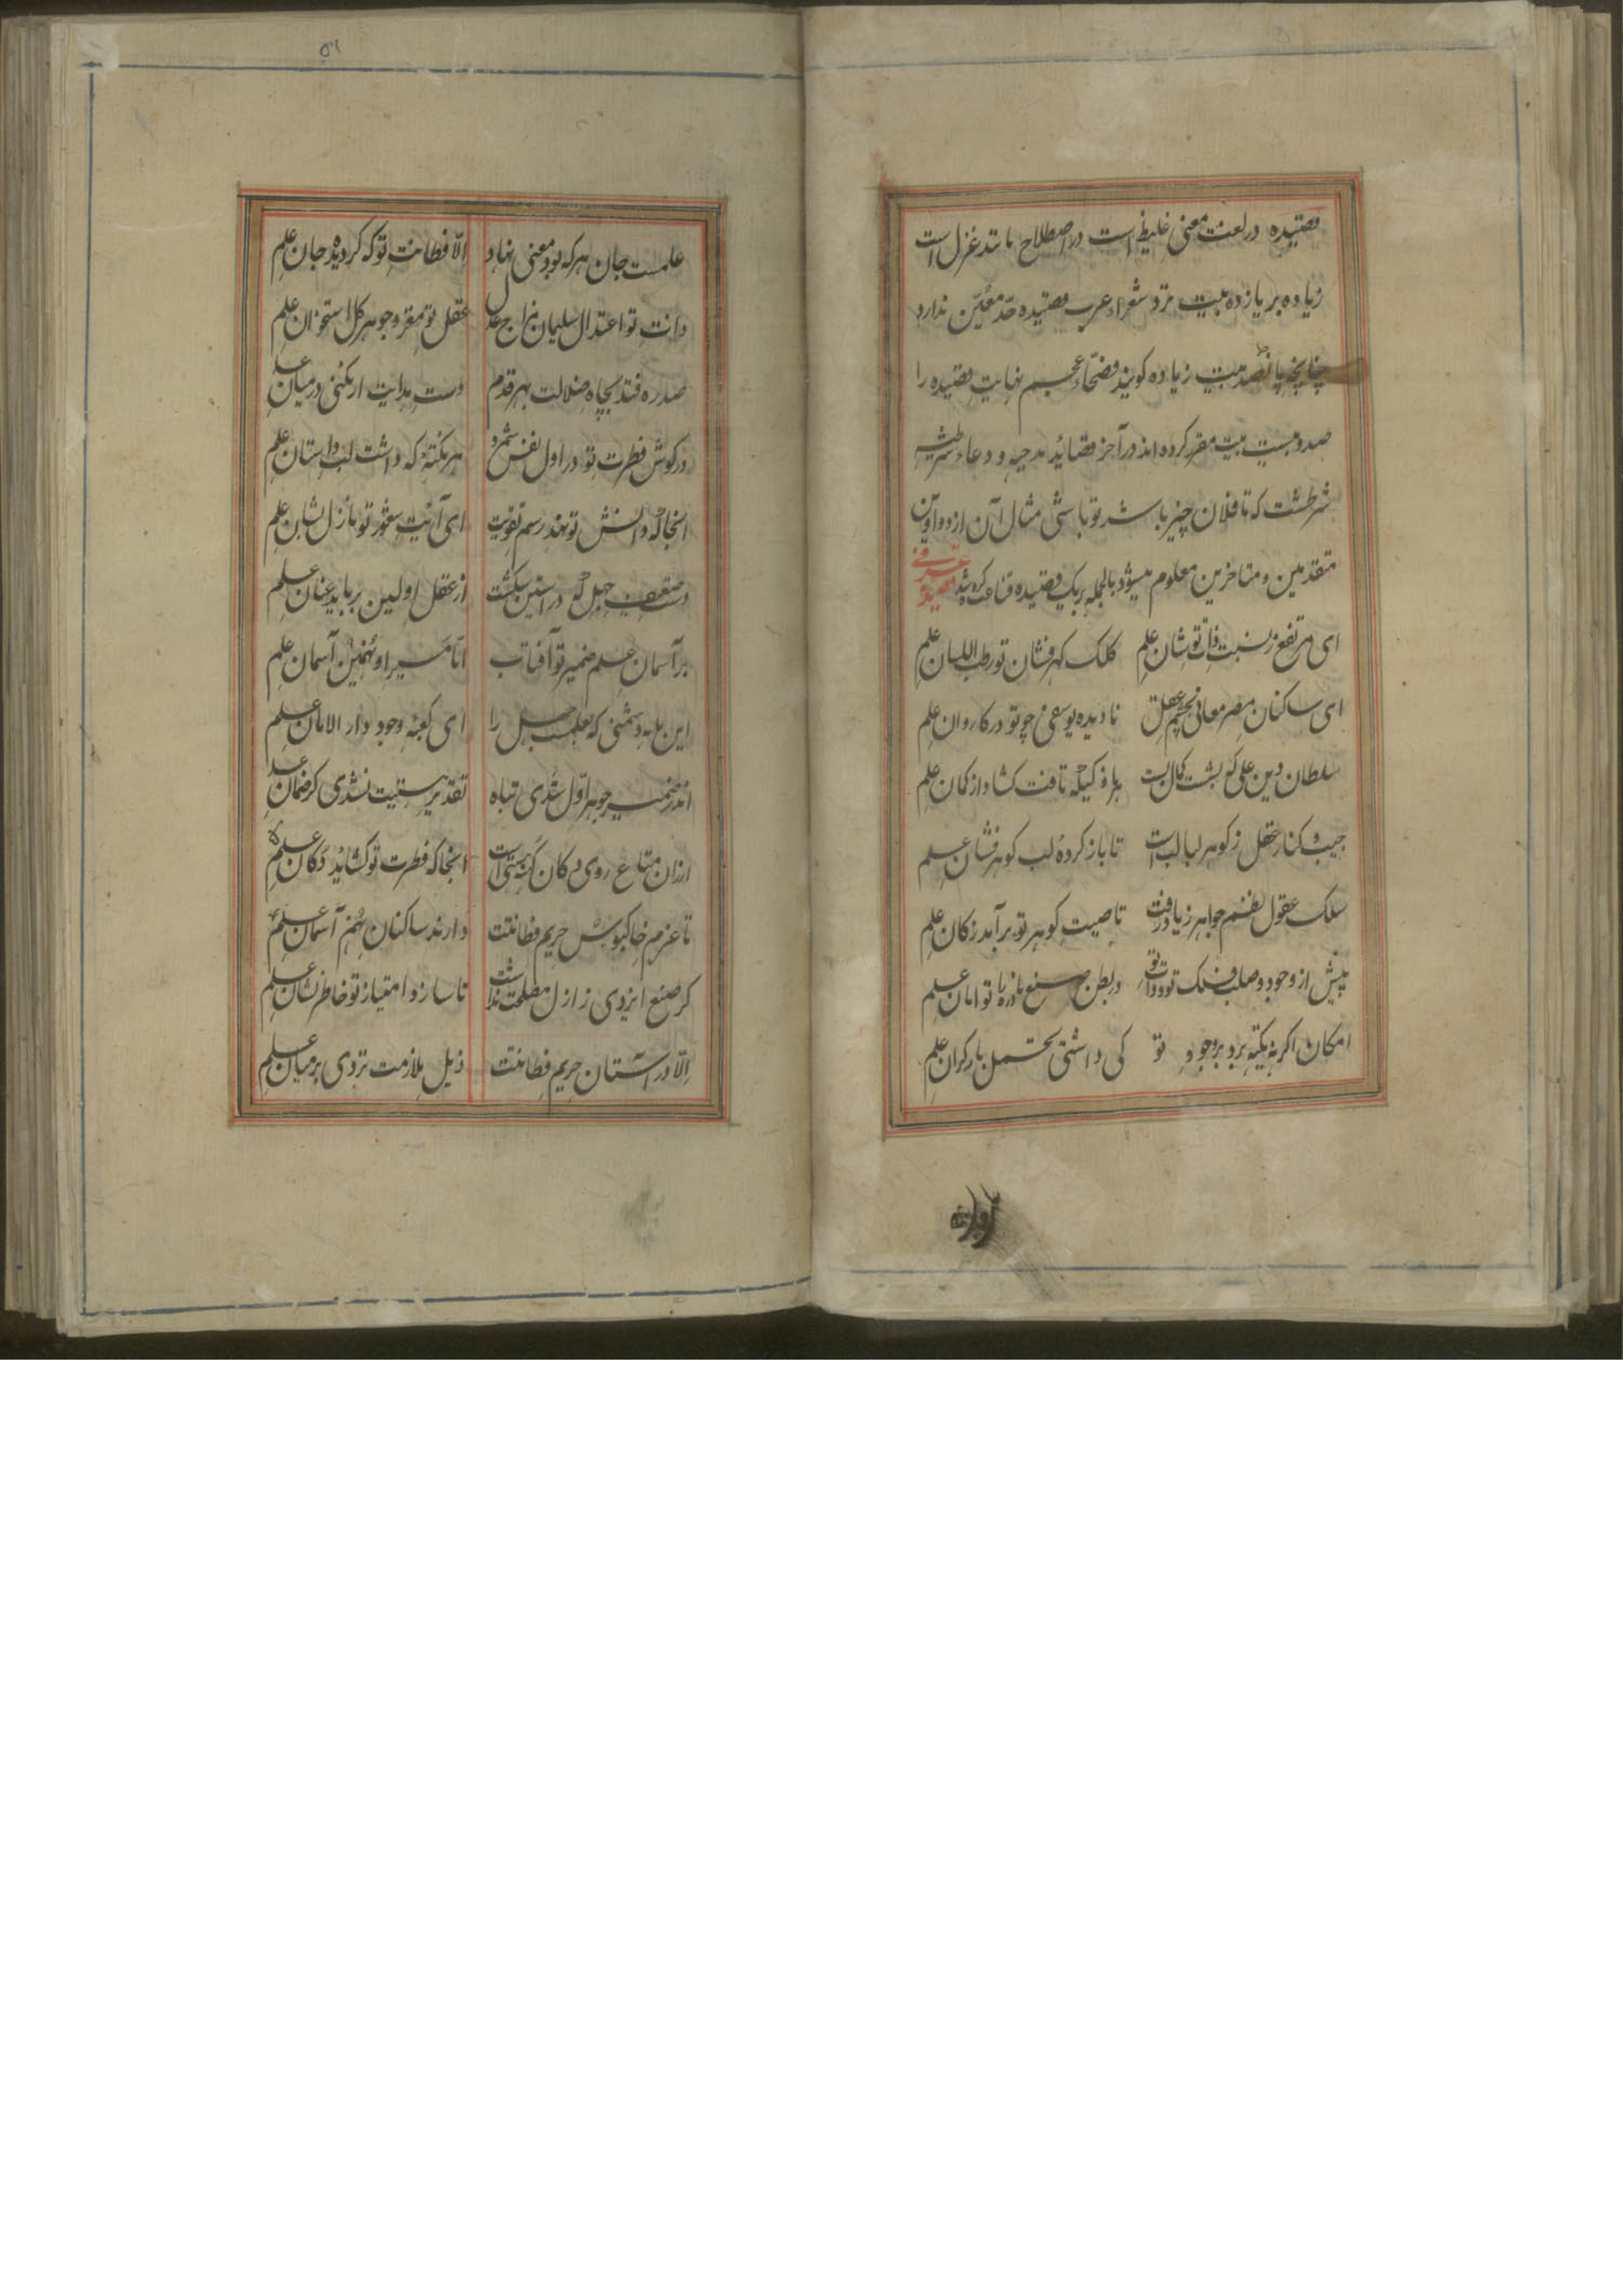 قصیده در لغت معنی غلیظ است در اصطلاح مانند غزل است
زیاده بر یازده بیت نزد شعراء عرب قصیده حدّ معیّن ندارد
چنانچه پانصد بیت زیاده کویند فصحاء عجم نهایت قصیده را
صد و بیست بیت مقرر کرده اند در آخر قصائد مدحیه و دعاء شرطیه
شرطست که تا فلان چیز باشد تو باشی مثال آن از دواوین
متقدمین و متاخرین معلوم میشود بالجمله بر یک قصیده قناعت کرده شد
عرفی
ای مرتفع ز نسبت ذات تو شان علم کلک کهرفشان تو رطب اللسان علم
ای ساکنان مصر معانی بچشم عقل نادیده یوسفی چو تو در کاروان علم
سلطان دین علی که بشست کمال تست هر ناوکیکه تافت کشاد از کمان علم
جیب و کنار عقل ز کوهر لبالب است تا باز کردهٔ لب کوهر فشان علم
سلک عقول نفس جواهر زیاد رفت تا صیت کوهر تو برآمد ز کان علم
پیش از وجود و صلب فلک تو و ذات تو در بطن صنع مادرها توامان علم
امکان اکر نه تکیه برد بر وجود تو کی داشتی تحمل بار کران علم
آوازه
۵۱
علمست جان هر که بود معنی نهاد الّا فطانت تو که کردید جان علم
ذات تو اعتدال سلیمان مزاج عدل عقل تو مغز و جوهر کل استخوان علم
صد ره فتد بچاه ضلالت بهر قدم دست هدایت ار نکنی در میان علم
در کوش فطرت تو در اول نفس شمرد هر نکتهٔ که داشت لب داستان علم
انجا که دانش تو نهد رسم تقویت ای آیت شعور تو نازل بشان علم
دست ضعیف جهل که در استین شکست از عقل اولین برباید عنان علم
بر آسمان علم ضمیر تو آفتاب امّا مسیر او نهمین آسمان علم
این بلیه دشمنی که بعلمست جهل را ای کعبهٔ وجود دار الامان علم
اندر ضمیر جوهر اول شدی تباه تقدیر تربیت نشدی کر ضمان علم
ارزان متاع روی دکان که هستی است انجا که فطرت تو کشاید دکان علم
تا عزم خاکبوس حریم فطانتت دارند ساکنان نهم آسمان علم
کر صنع ایزدی ز ازل مصلحت نداشت تا سازد امتیاز تو خاطر نشان علم
الّا در آستان حریم فطانتت ذیل ملازمت نزدی بر میان علم